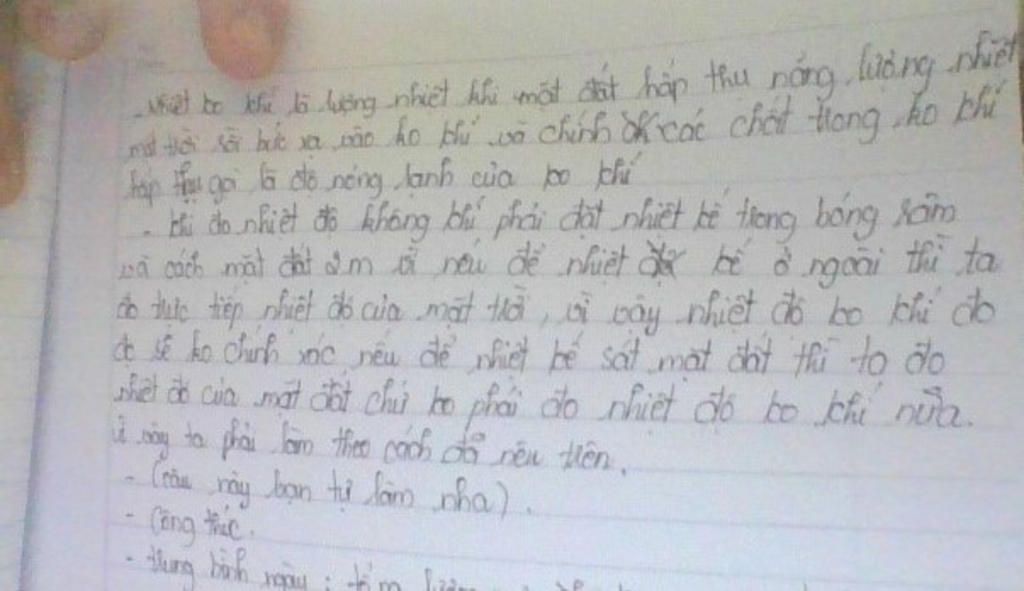 - nhiệt ko khí là lượng nhiệt khi mặt đất hấp thu năng lượng nhiệt
mặt trời rồi bức xạ vào ko khí và chính các chất trong ko khí
hấp thụ gọi là độ nóng lạnh của ko khí
- khi đo nhiệt độ không khí phải đặt nhiệt kế trong bóng râm
và cách mặt đất 2m vì nếu để nhiệt kế ở ngoài thì ta
đo trực tiếp nhiệt độ của mặt trời, vì vậy nhiệt độ ko khí đo
đc sẽ ko chính xác nếu để nhiệt kế sát mặt đất thì ta đo
nhiệt độ của mặt đất chứ ko phải đo nhiệt độ ko khí nữa.
vì vậy ta phải làm theo cách đã nêu trên.
- (câu này bạn tự làm nha).
- Công thức.
- trung bình ngày :